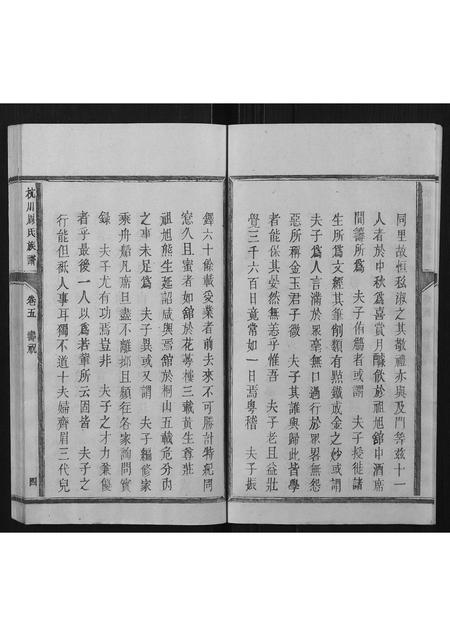 同里故恒秘淑之其敬禮亦與及門等茲十一
人者於中秋爲喜賞月醵飲於祖旭舘中酒席
間籌所爲 夫子侑觴者或謂 夫子授徒諸
生所爲文經其筆削類有點鐵成金之妙或謂
夫子爲人言滿於眾毫無口過行於眾畧無怨
惡所稱金玉君子微 夫子其誰與歸此皆學
者能保其晏然無恙乎惟吾 夫子老且益壯
覺三千六百日竟常如一日焉粵稽 夫子振
鐸六十餘載受業者前去來不可勝計特紀同
窓久且蜜者如舘於花蕚樓三載黃生尊莊
祖旭熊生廷詔咸與焉舘於桐山五載危分內
之事未足爲 夫子異或又謂 夫子編修家
乘舟船凡席旦盡不離鄉且願往各家詢問實
錄 夫子尤有功焉豈非 夫子之才力兼優
者乎最後一人以爲若輩所云固皆 夫子之
行能但祇人事耳獨不道十夫婦齊眉三代兒
杭川周氏族譜 卷五 壽祝 四